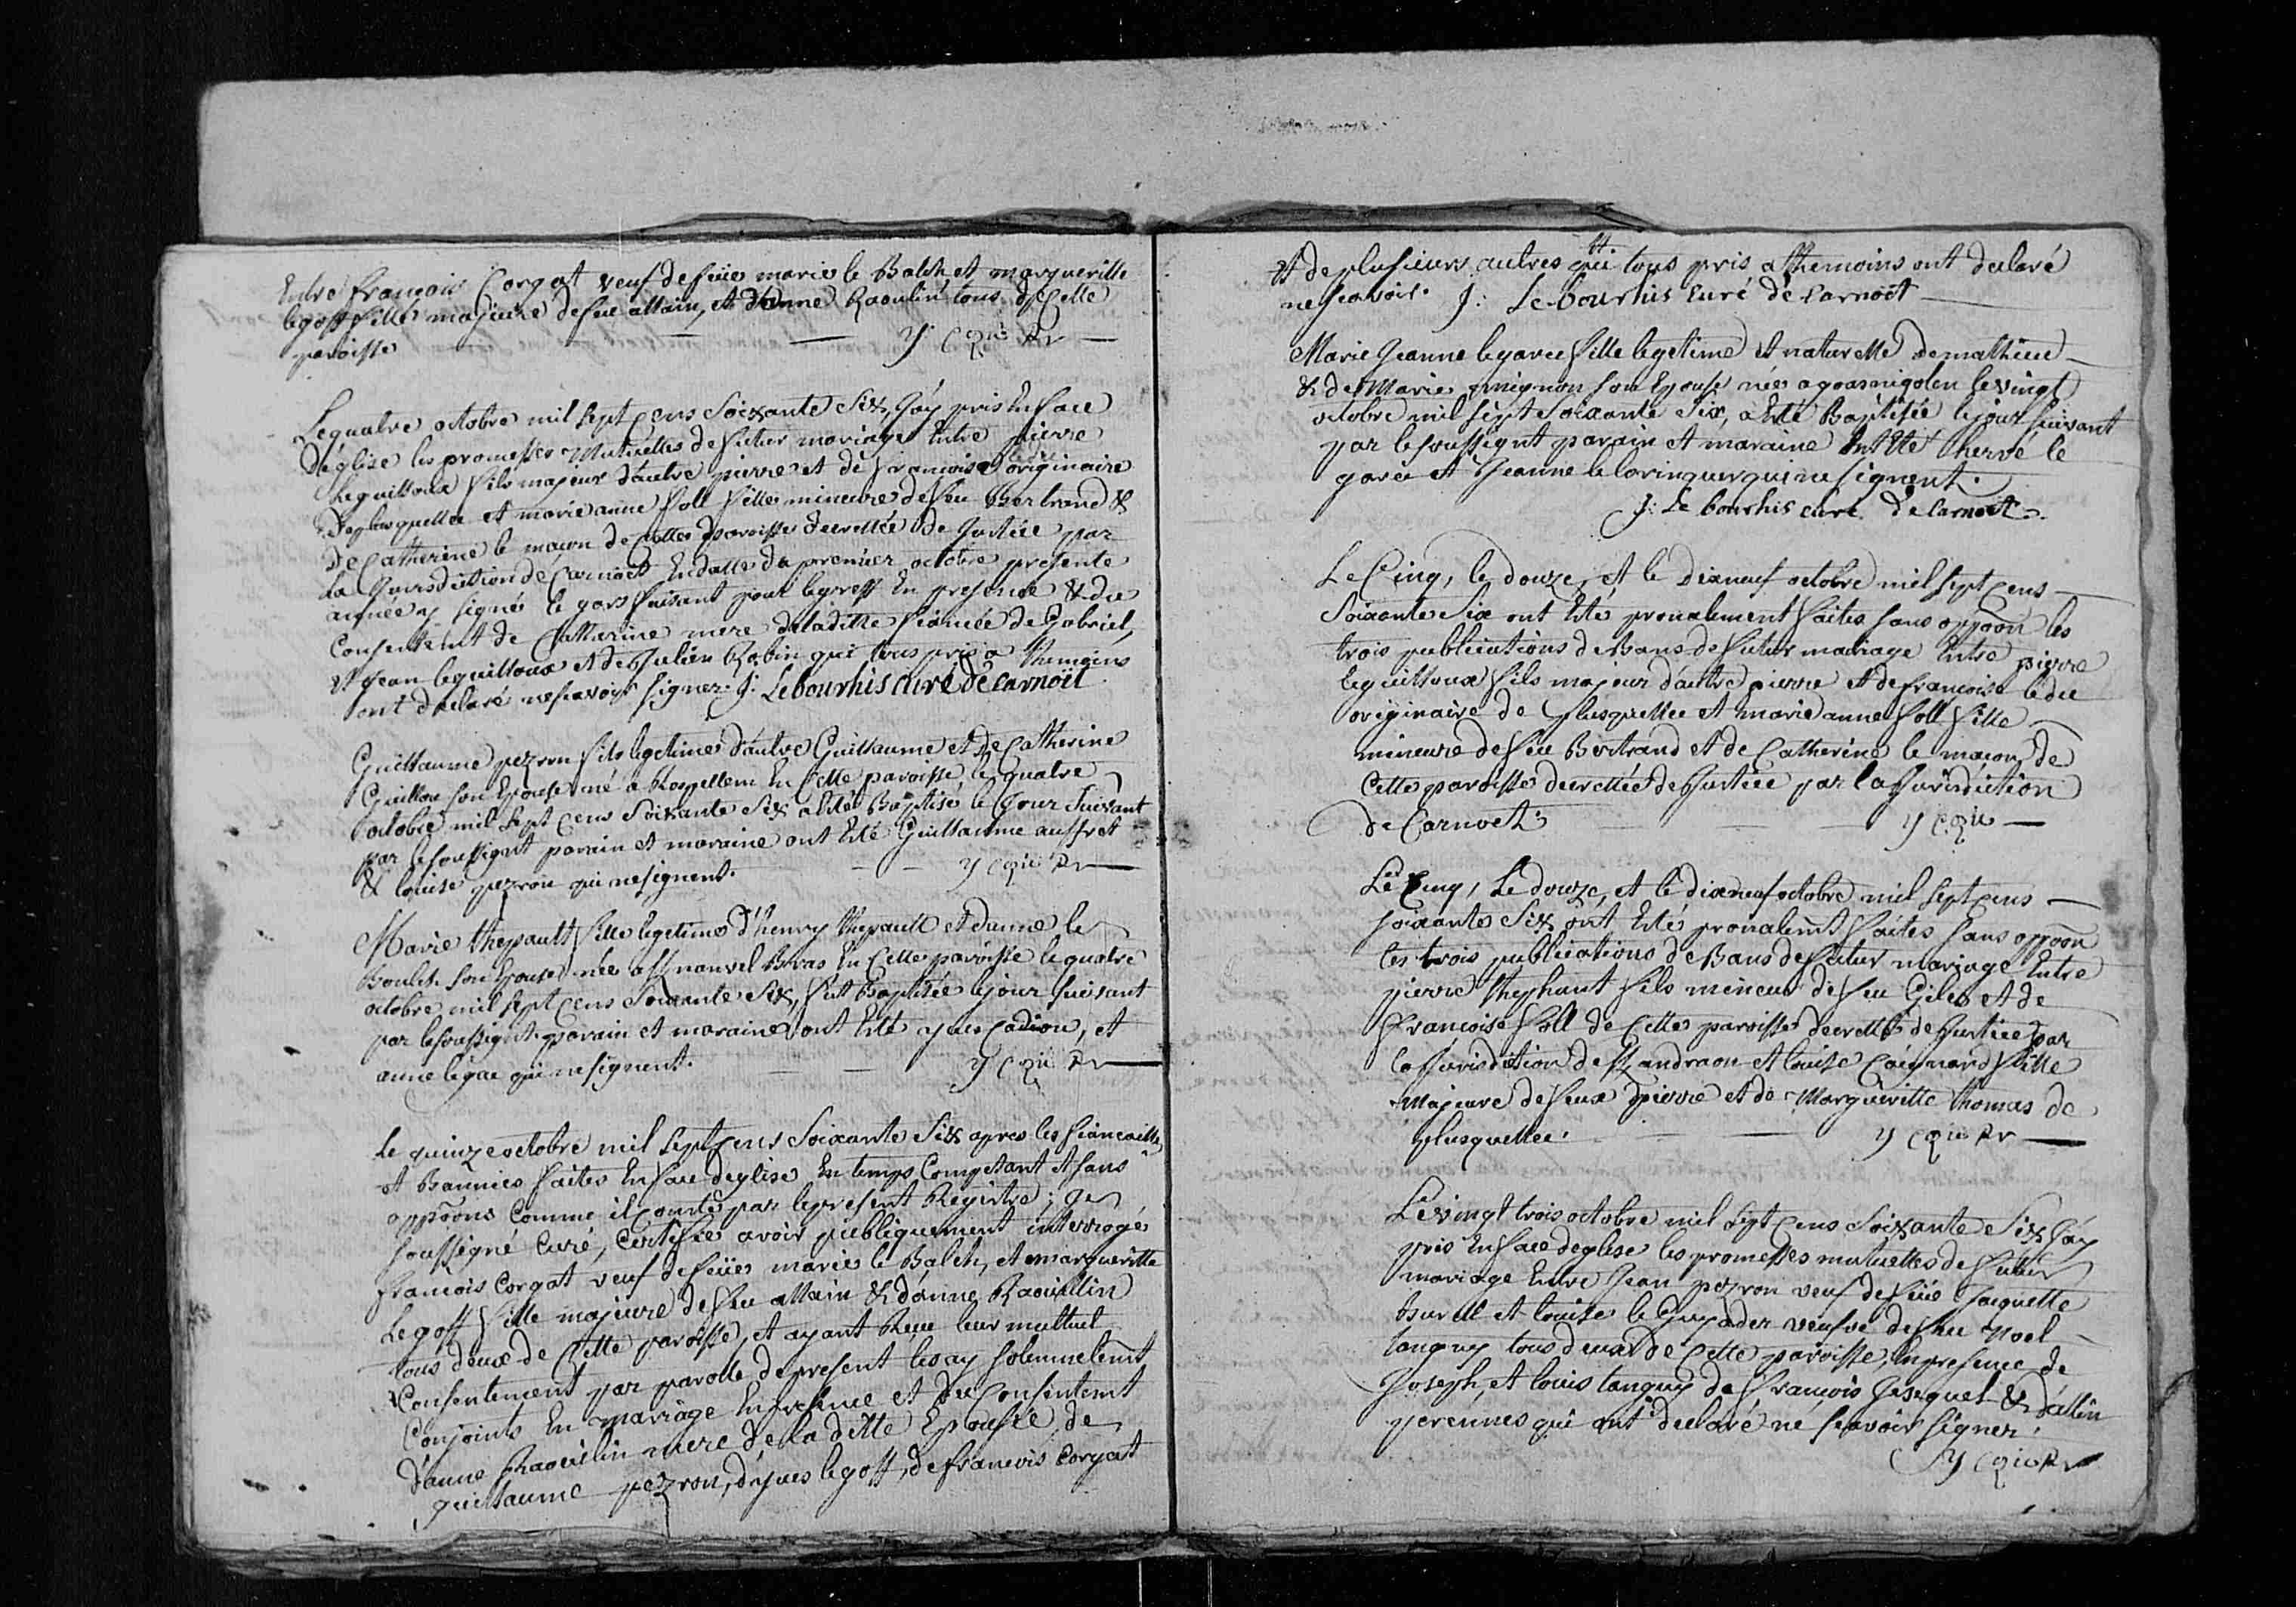 Entre françois Corgat veuf de feüe marie le Balch et margueritte
legoff fille majeure de feu allain, et danne Raoulin tous de Cette
paroisse
Lequatre octobre mil sept cens soixante six, J'ay pris En face
d'église les promesses Mutuelles de futur mariage Entre pierre
Lequilloux fils majeur d'autre pierre et de francoise ledu originaire
de plusquellec et marie anne foll fille mineure de feu Bertrand &
de Catherine le maçon de Cette paroisse decrettée de Justice par
la Jurisdiction de Carnoët En datte du premier octobre presente
année signé le gars faisant pour le greff En presence & du
Consentemt de Catherine mere de laditte fiancée de Gabriel,
et Jean lequilloux et de Julien Robin qui tous pris a themoins
ont déclaré ne scavoir signer. J: Le bourhis curé de Carnoët
Guillaume pezron fils legetime d'autre Guillaume et de Catherine
Guillou son Epouse né a Rospellem En Cette paroisse le quatre
octobre mil sept cens soixante six a Eté Baptisé le Jour suivant
par le soussignt parain et maraine ont Eté Guillaume auffret
& louise pezron qui ne signent.
Marie thepault fille legetime d'henry thepault et danne le
Boulch son Epouse née a nanvel Bras En Cette paroisse le quatre
octobre mil sept cens soixante six, fut Baptisée lejour suivant
par le soussignt. parain et maraine ont Eté yves Cadiou, et
anne legac qui ne signent.
Le quinze octobre mil sept cens soixante six apres les fiancailles
et Bannies faites En face deglise En temps Competant et sans
oppõons comme il Conste par le present Registre; Je
soussigné Curé, Certifie avoir publiquement interrogé
francois Corgat veuf de feüe marie le Balch, et margueritte
Legoff fille majeure de feu allain & d'anne Raouillin
tous deux de Cette paroisse, et ayant Reçu leur muttuel
Consentement par parolle de present les ay solemnelemt
Conjoints En mariage En presence et du Consentemt
d'anne Raoulin mere de la ditte Epousée, de
guillaume pezron, d'yves legoff, de francois Corgat
et de plusieurs autres qui tous pris a themoins ont declaré
ne scavoir. J: Le bourhis Curé de Carnoët
Marie Jeanne legarec fille legetime et naturelle de mathieu
& de Marie mignon son Epouse née a goasnigolen le vingt
octobre mil sept soixante six, a Eté Baptisée lejour suivant
par le soussignt parain et maraine ont Eté hervé le
garec et Jeanne le lorinquer qui ne signent.
J: Le bourhis curé de Carnoët
Le Cinq, le douze, et le dixneuf octobre mil sept cens
soixante six ont Eté pronalement faites sans oppõon les
trois publications de Bans de futur mariage Entre pierre
lequilloux fils majeur d'autre pierre et de francoise ledu
originaire de plusquellec et marie anne foll fille
mineure de feu Bertrand et de Catherine le maçon de
Cette paroisse decrettée de Justice par la Jurisdiction
de Carnoët.
Le Cinq, Le douze, et le dixneuf octobre mil sept cens
soixante six ont Eté pronalemt faites sans oppõon
les trois publications de Bans de futur mariage Entre
pierre thephant fils mineur de feu Giles et de
francoise foll de Cette paroisse decretté de Justice par
la Jurisdiction de St andraon et louise Caignard fille
Majeure de feux pierre et de Margueritte thomas de
plusquellec.
Le vingt trois octobre mil sept cens soixante six J'ay
pris En face deglise les promesses mutuelles de futur
mariage Entre Jean pezron veuf de feüe Jacquette
burell et louise le Guyader veufve de feu Noel
tanguy tous deux de Cette paroisse, En presence de
Joseph et louis tanguy de francois Jesequel & d'allin
perennes qui ont declaré ne scavoir signer.